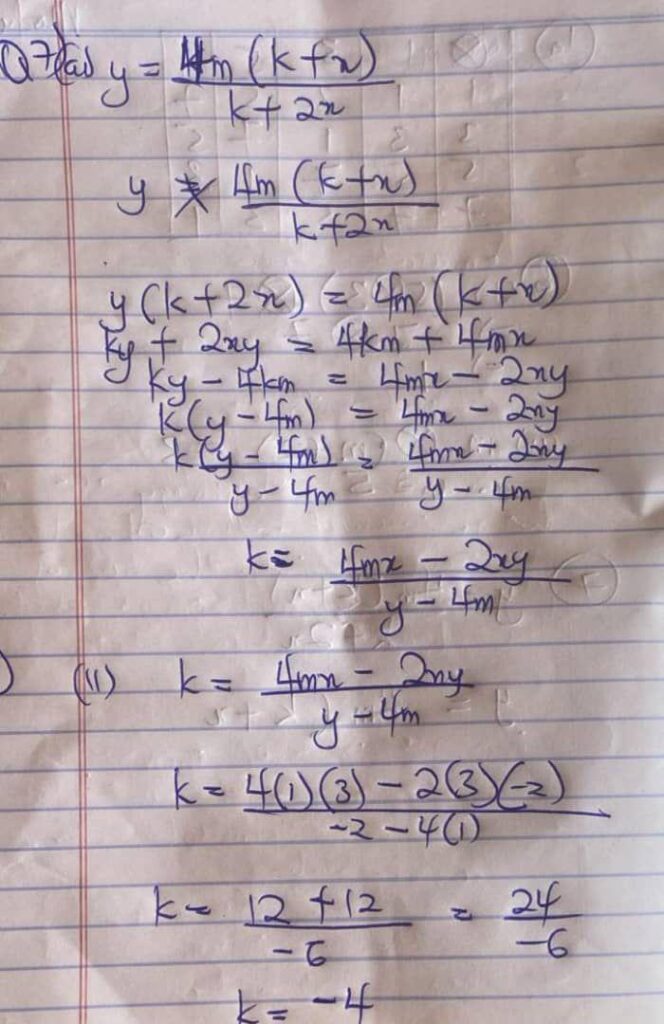 Q7(a) y = 4m (k+x) / k+2x
y × 4m (k+x) / k+2x
y (k+2x) = 4m (k+x)
ky + 2xy = 4km + 4mx
ky - 4km = 4mx - 2xy
k(y-4m) = 4mx - 2xy
k(y-4m) / y-4m = 4mx - 2xy / y-4m
k = 4mx - 2xy / y-4m
(ii) k = 4mx - 2xy / y-4m
k = 4(1)(3) - 2(3)(-2) / -2 - 4(1)
k = 12 + 12 / -6 = 24 / -6
k = -4